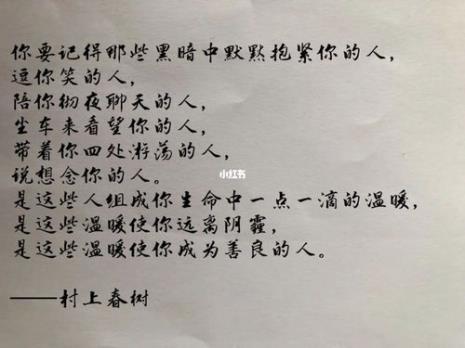 你要记得那些黑暗中默默抱紧你的人，
逗你笑的人，
陪你彻夜聊天的人，
坐车来看望你的人，
带着你四处游荡的人，
说想念你的人。
是这些人组成你生命中一点一滴的温暖，
是这些温暖使你远离阴霾，
是这些温暖使你成为善良的人。
——村上春树
小红书